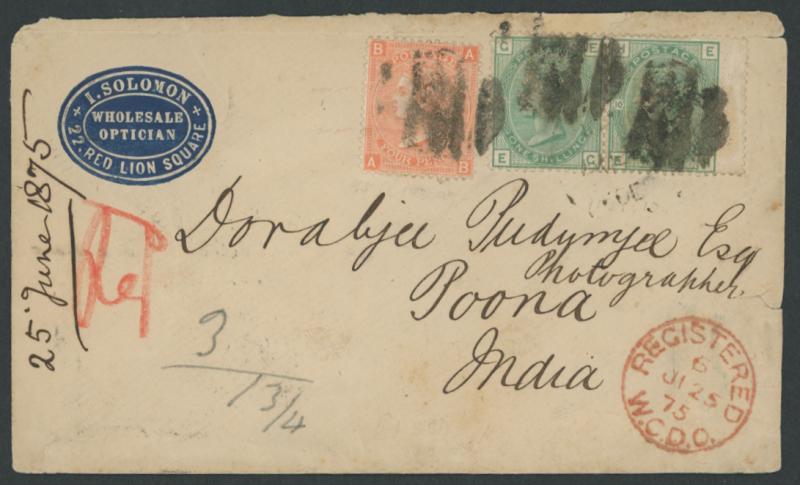 I. SOLOMON
WHOLESALE
OPTICIAN
22. RED LION SQUARE
B A
FOUR PENCE
A B
G E H E
POSTAGE
ONE SHILLING
E G E
25 June 1875
Reg
Dorabjee Pudumjee Esq
Photographer
Poona
India
3
1 3/4
REGISTERED
6
JU 25
75
W.C.D.O.